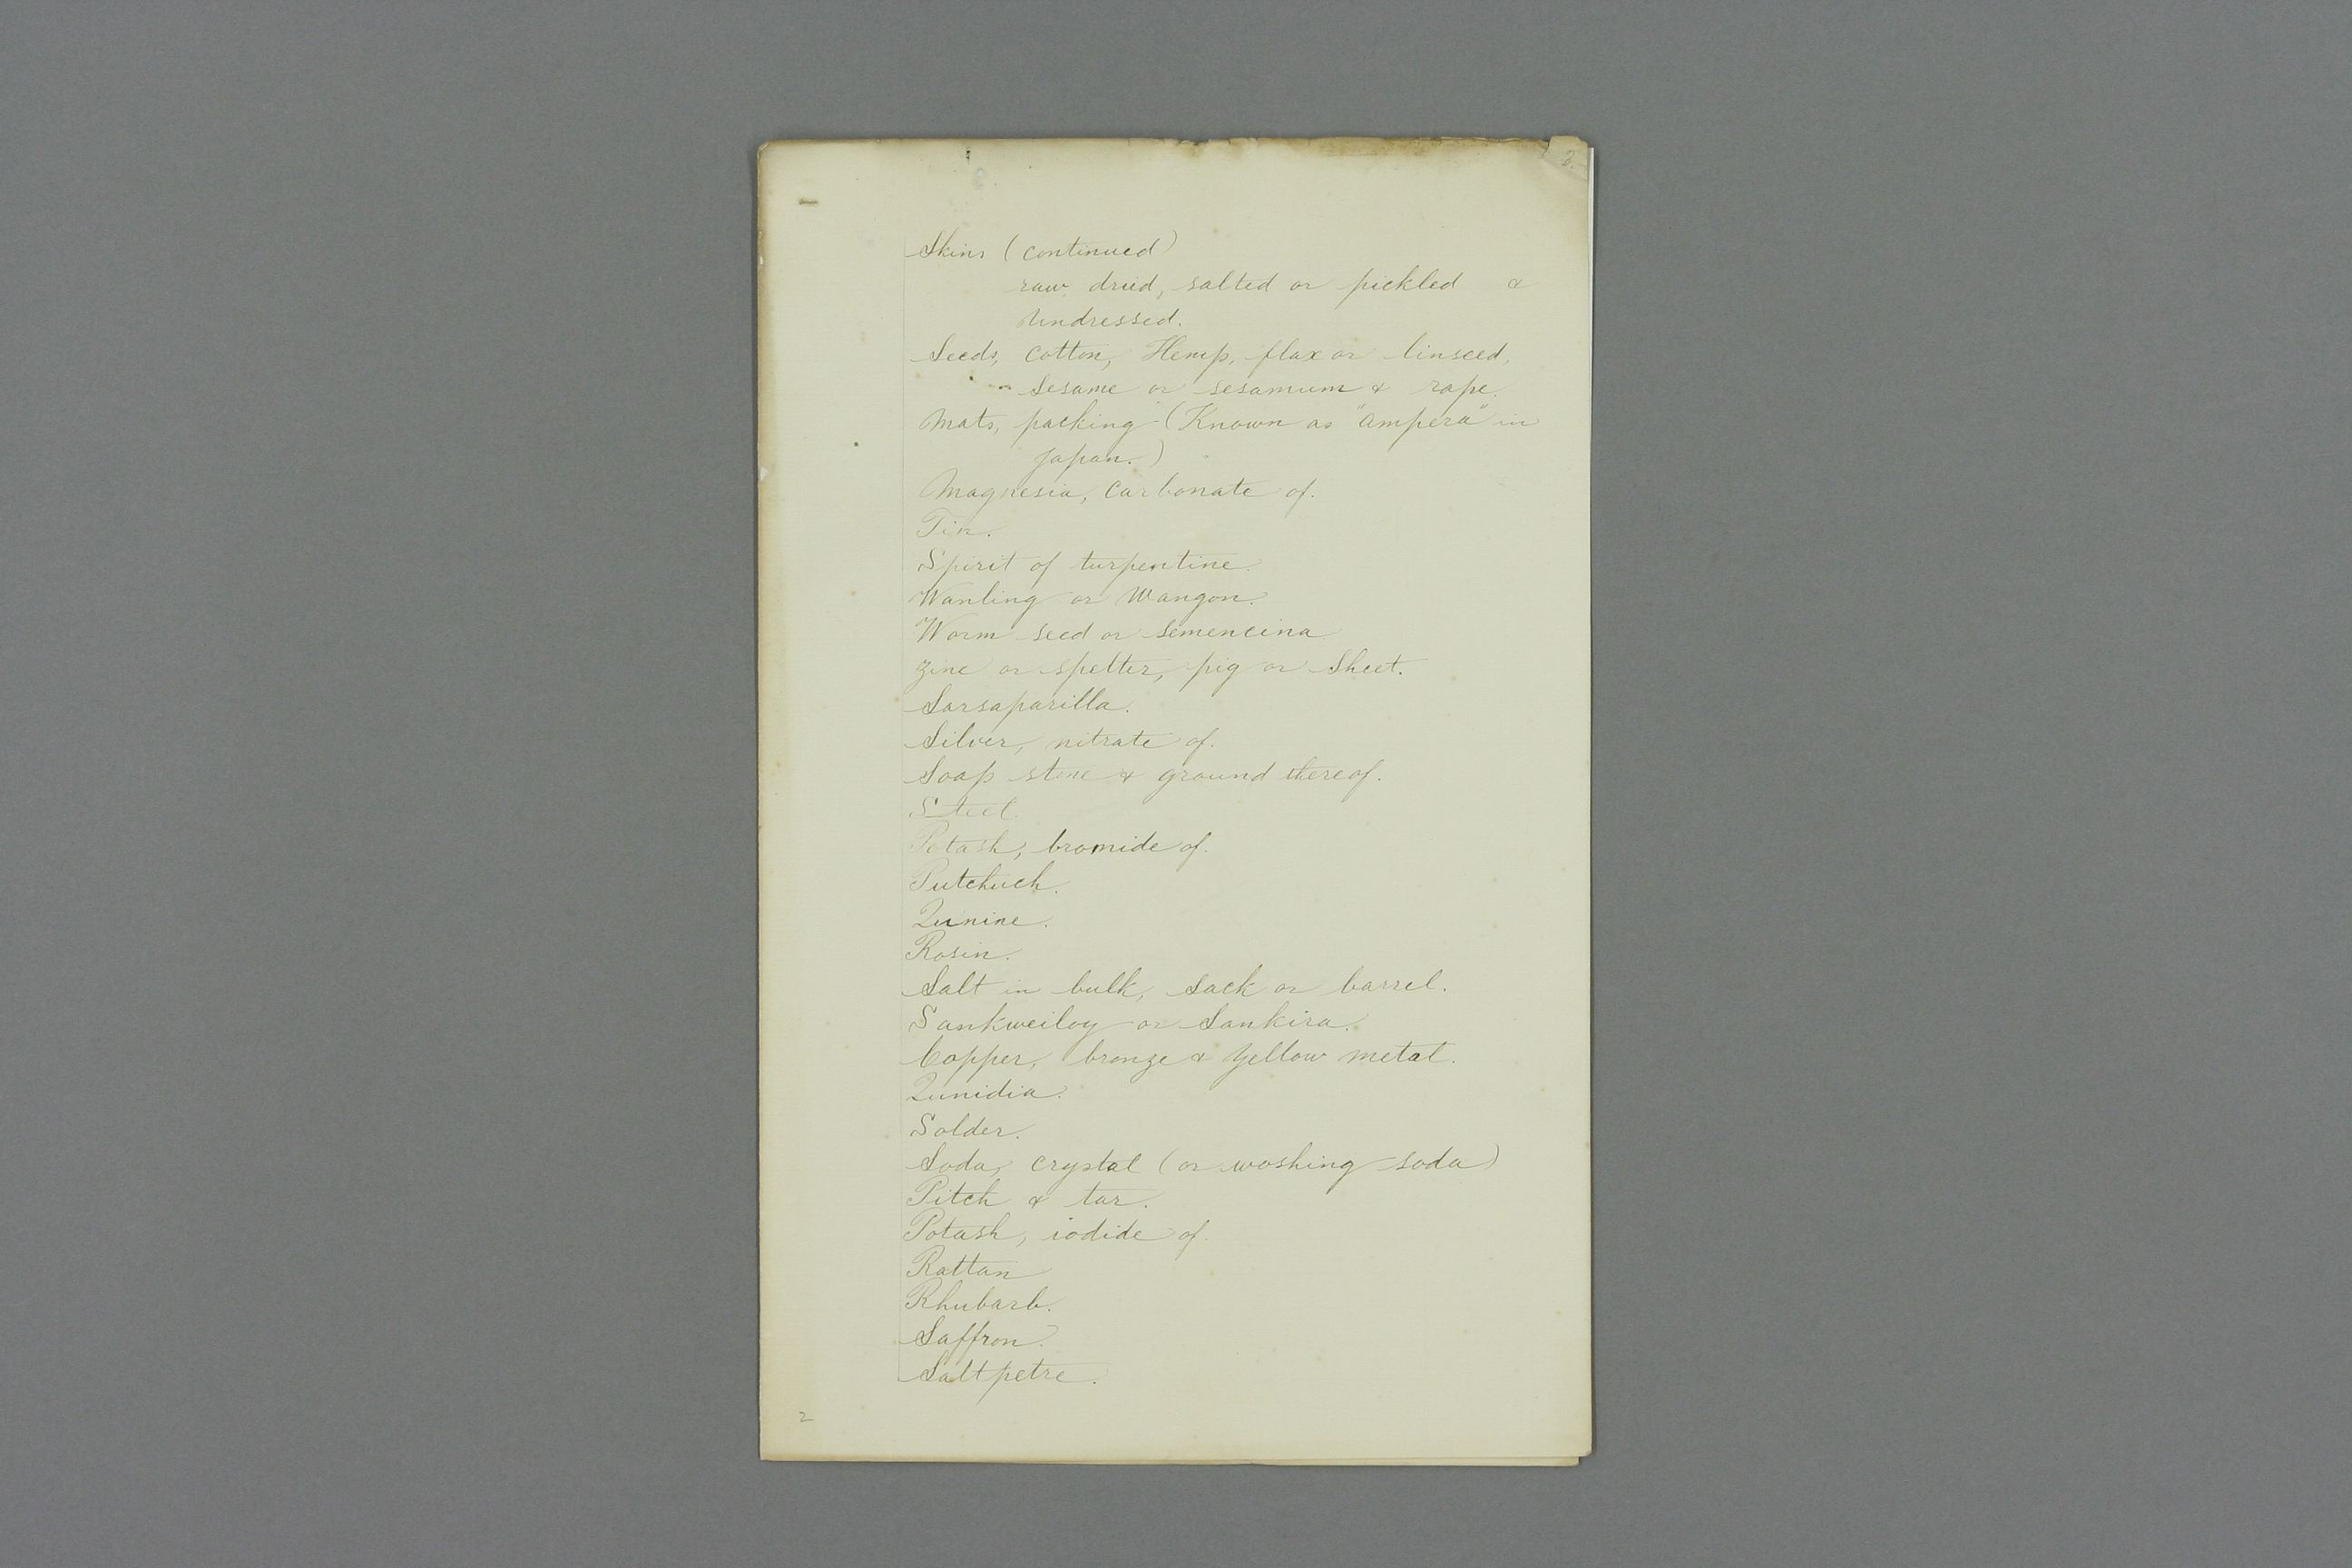 3.
Skins (continued)
raw dried, salted or pickled &
Undressed.
Seeds, cotton, Hemp, flax or linseed,
Sesame or sesamum & rape.
Mats, packing (Known as "ampera" in
Japan.)
Magnesia, carbonate of.
Tin.
Spirit of turpentine.
Wanling or Wangon.
Worm seed or Semencina
Zinc or spelter, pig or Sheet.
Sarsaparilla.
Silver, nitrate of.
Soap stone & ground thereof.
Steel.
Potash, bromide of.
Putchuck.
Qunine.
Rosin.
Salt in bulk, sack or barrel.
Sankweiloy or Sankira.
Copper, bronze & Yellow metal.
Qunidia.
Solder.
Soda, crystal (or washing soda)
Pitch & tar.
Potash, iodide of.
Rattan
Rhubarb.
Saffron.
Saltpetre.
2